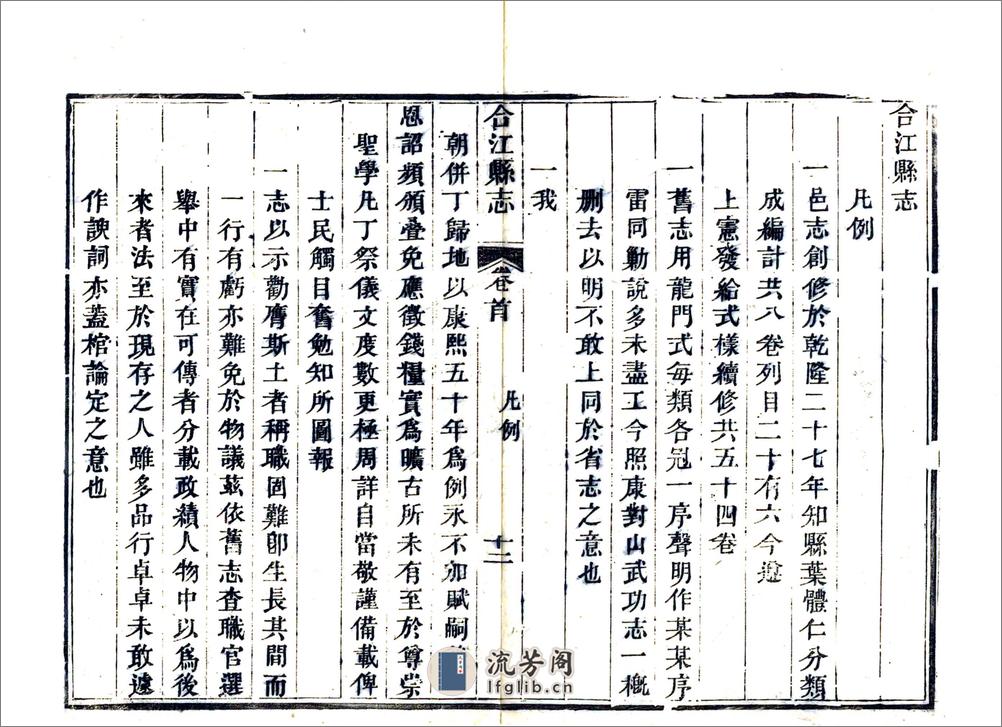 合江縣志
凡例
一邑志創修於乾隆二十七年知縣葉體仁分類
成編計共八卷列目二十有六今遵
上憲發給式樣續修共五十四卷
一舊志用龍門式每類各冠一序聲明作某某序
雷同勦說多未盡工今照康對山武功志一概
删去以明不敢上同於省志之意也
一我
合江縣志 卷首 凡例 十二
朝併丁歸地以康熙五十年為例永不加賦嗣
恩詔頻頒疊免應徵錢糧實為曠古所未有至於尊崇
聖學凡丁祭儀文度數更極周詳自當敬謹備載俾
士民觸目奮勉知所圖報
一志以示勸膺斯土者稱職固難卽生長其間而
一行有虧亦難免於物議茲依舊志查職官選
舉中有實在可傳者分載政績人物中以為後
來者法至於現存之人雖多品行卓卓未敢遽
作諛詞亦蓋棺論定之意也
流芳阁
lfglib.cn